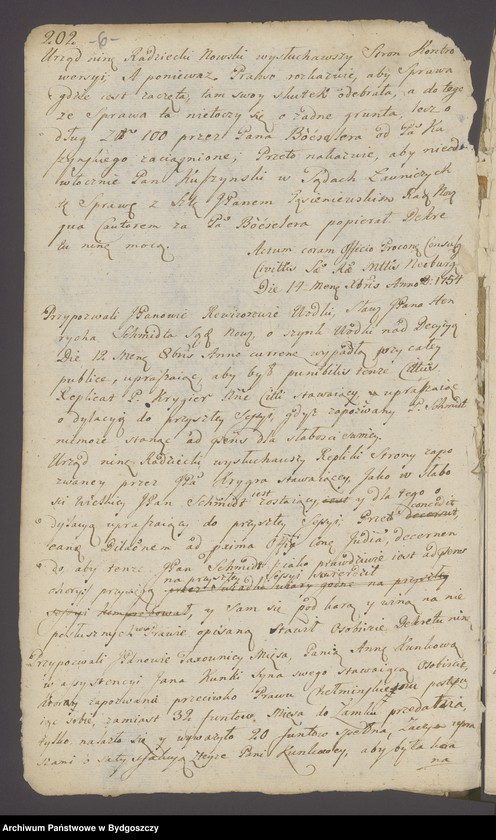 202 -6-
Urząd ninę Radziecki Nowski wysłuchawszy Stron Kontro
wersyi, A ponieważ Prawo rozkazuie, aby Sprawa
gdzie iest zaczęta, tam swoy skutek odebrała, a do tego
że Sprawa ta nietoczy się o żadne grunta, lecz o
dług 100 przez Pana od Pa Ku
szynskiego zaciągnione; Przeto nakazuie, aby nieod
włocznie Pan Kuszynski w Sądach Ławniczych
tę Sprawę z JPanem Radź Now
qua za Pa popierał. Dekre
tu ninę mocą.
Actum coram Officio Procons Consul
Civittis Sae Rae Mttis Neoburg
Die 14 Mens Xbris Anno D: 1754
Przypozwali JPanowie Rewizorowie Wodki, Sław JPana Hen
rycha Schmidta Nowg, o szynk Wodki nad Decyzyą
Die 12 Mens 8bris Anno currente wypadłą przy całey
publice, upraszaiąc, aby był punibilis tenze Cittus.
Replicat P. Krygier Citti stawaiący, upraszaiąc
o dylacyą do przyszłey Sessyi, gdyż zapozwany Pa Schmidt
niemoze stanąć ad dla słabosci swoiey.
Urząd ninę Radziecki wysłuchawszy Repliki Strony zapo
zwaney przez Pa Krygra stawaiącey, Jako w słabo
sci wielkiey JPan Schmidt iest zostaiący y dla tego o
dylacyą upraszaiący do przyszłey Sessyi Przeto concedit
eane Dilaonem ad prima Judia, decernen
do aby tenze JPan Schmidt / jako prawdziwie iest
chory / przysiągł na przyszłey Sessyi na przyszłey
Sessyi komprobował, y Sam się pod karą y winą na nie
posłusznych w Prawie opisaną Stawił Osobiscie Dekretu ninę
Przypozwali JPanowie Taxownicy Mięsa, Panią Annę Kunkową
w assystencyi Jana Kunki Syna swego Stawaiącą Osobiscie,
ktorzy zapozwani przeciwko Prawu Chełminskiemu postępu
iąc sobie, zamiast 32 funtow Mięsa do Zamku przedataia,
tylko nalazło się y wyważyło 20 funtow Spełna, Zaczym upra
szali o satysfakcyą teyze Pani Kunkowey, aby była kara
na
Archiwum Państwowe w Bydgoszczy